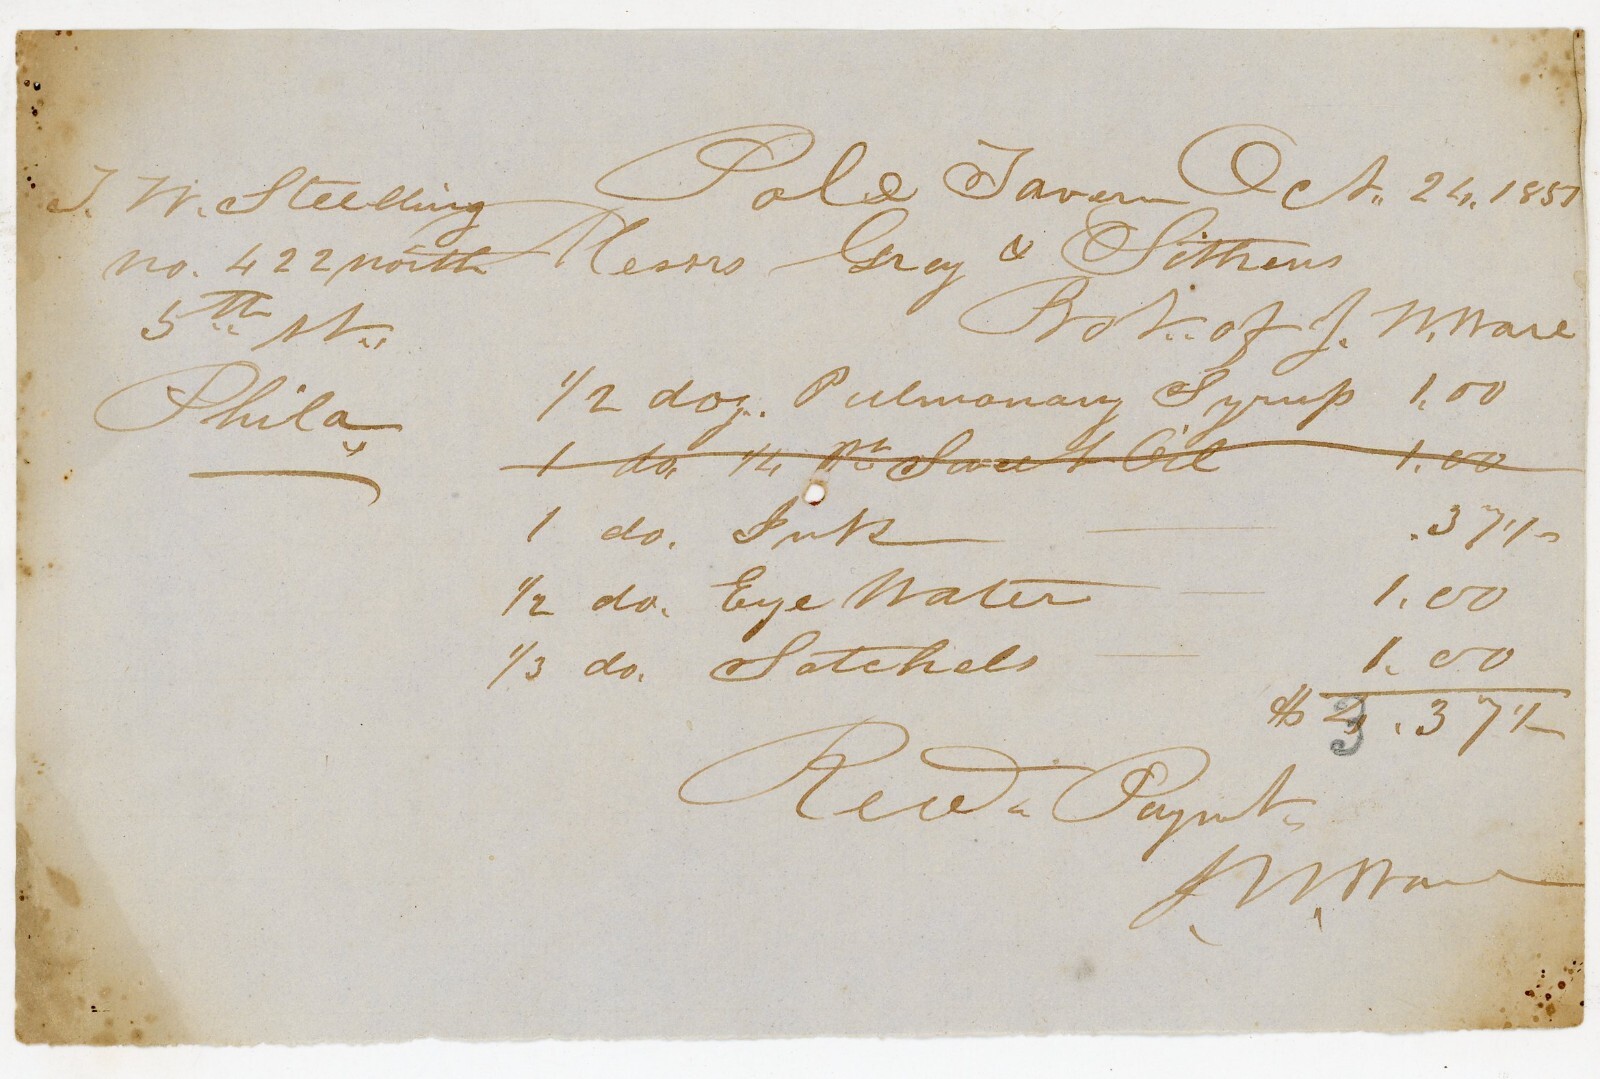 Pole Tavern Oct. 24, 1857
J. W. Stelling
no. 422 north
5th st.
Phila
Messrs Gray & Sithens
Bot. of J. W. Ware
1/2 doz. Pulmonary Syrup 1.00
1 do. 1/4 Pt Sweet Oil 1.00
1 do. Ink .37 1/2
1/2 do. Eye Water 1.00
1/3 do. Satchels 1.00
$ 3.37 1/2
Recd Paymt.
J. W. Ware